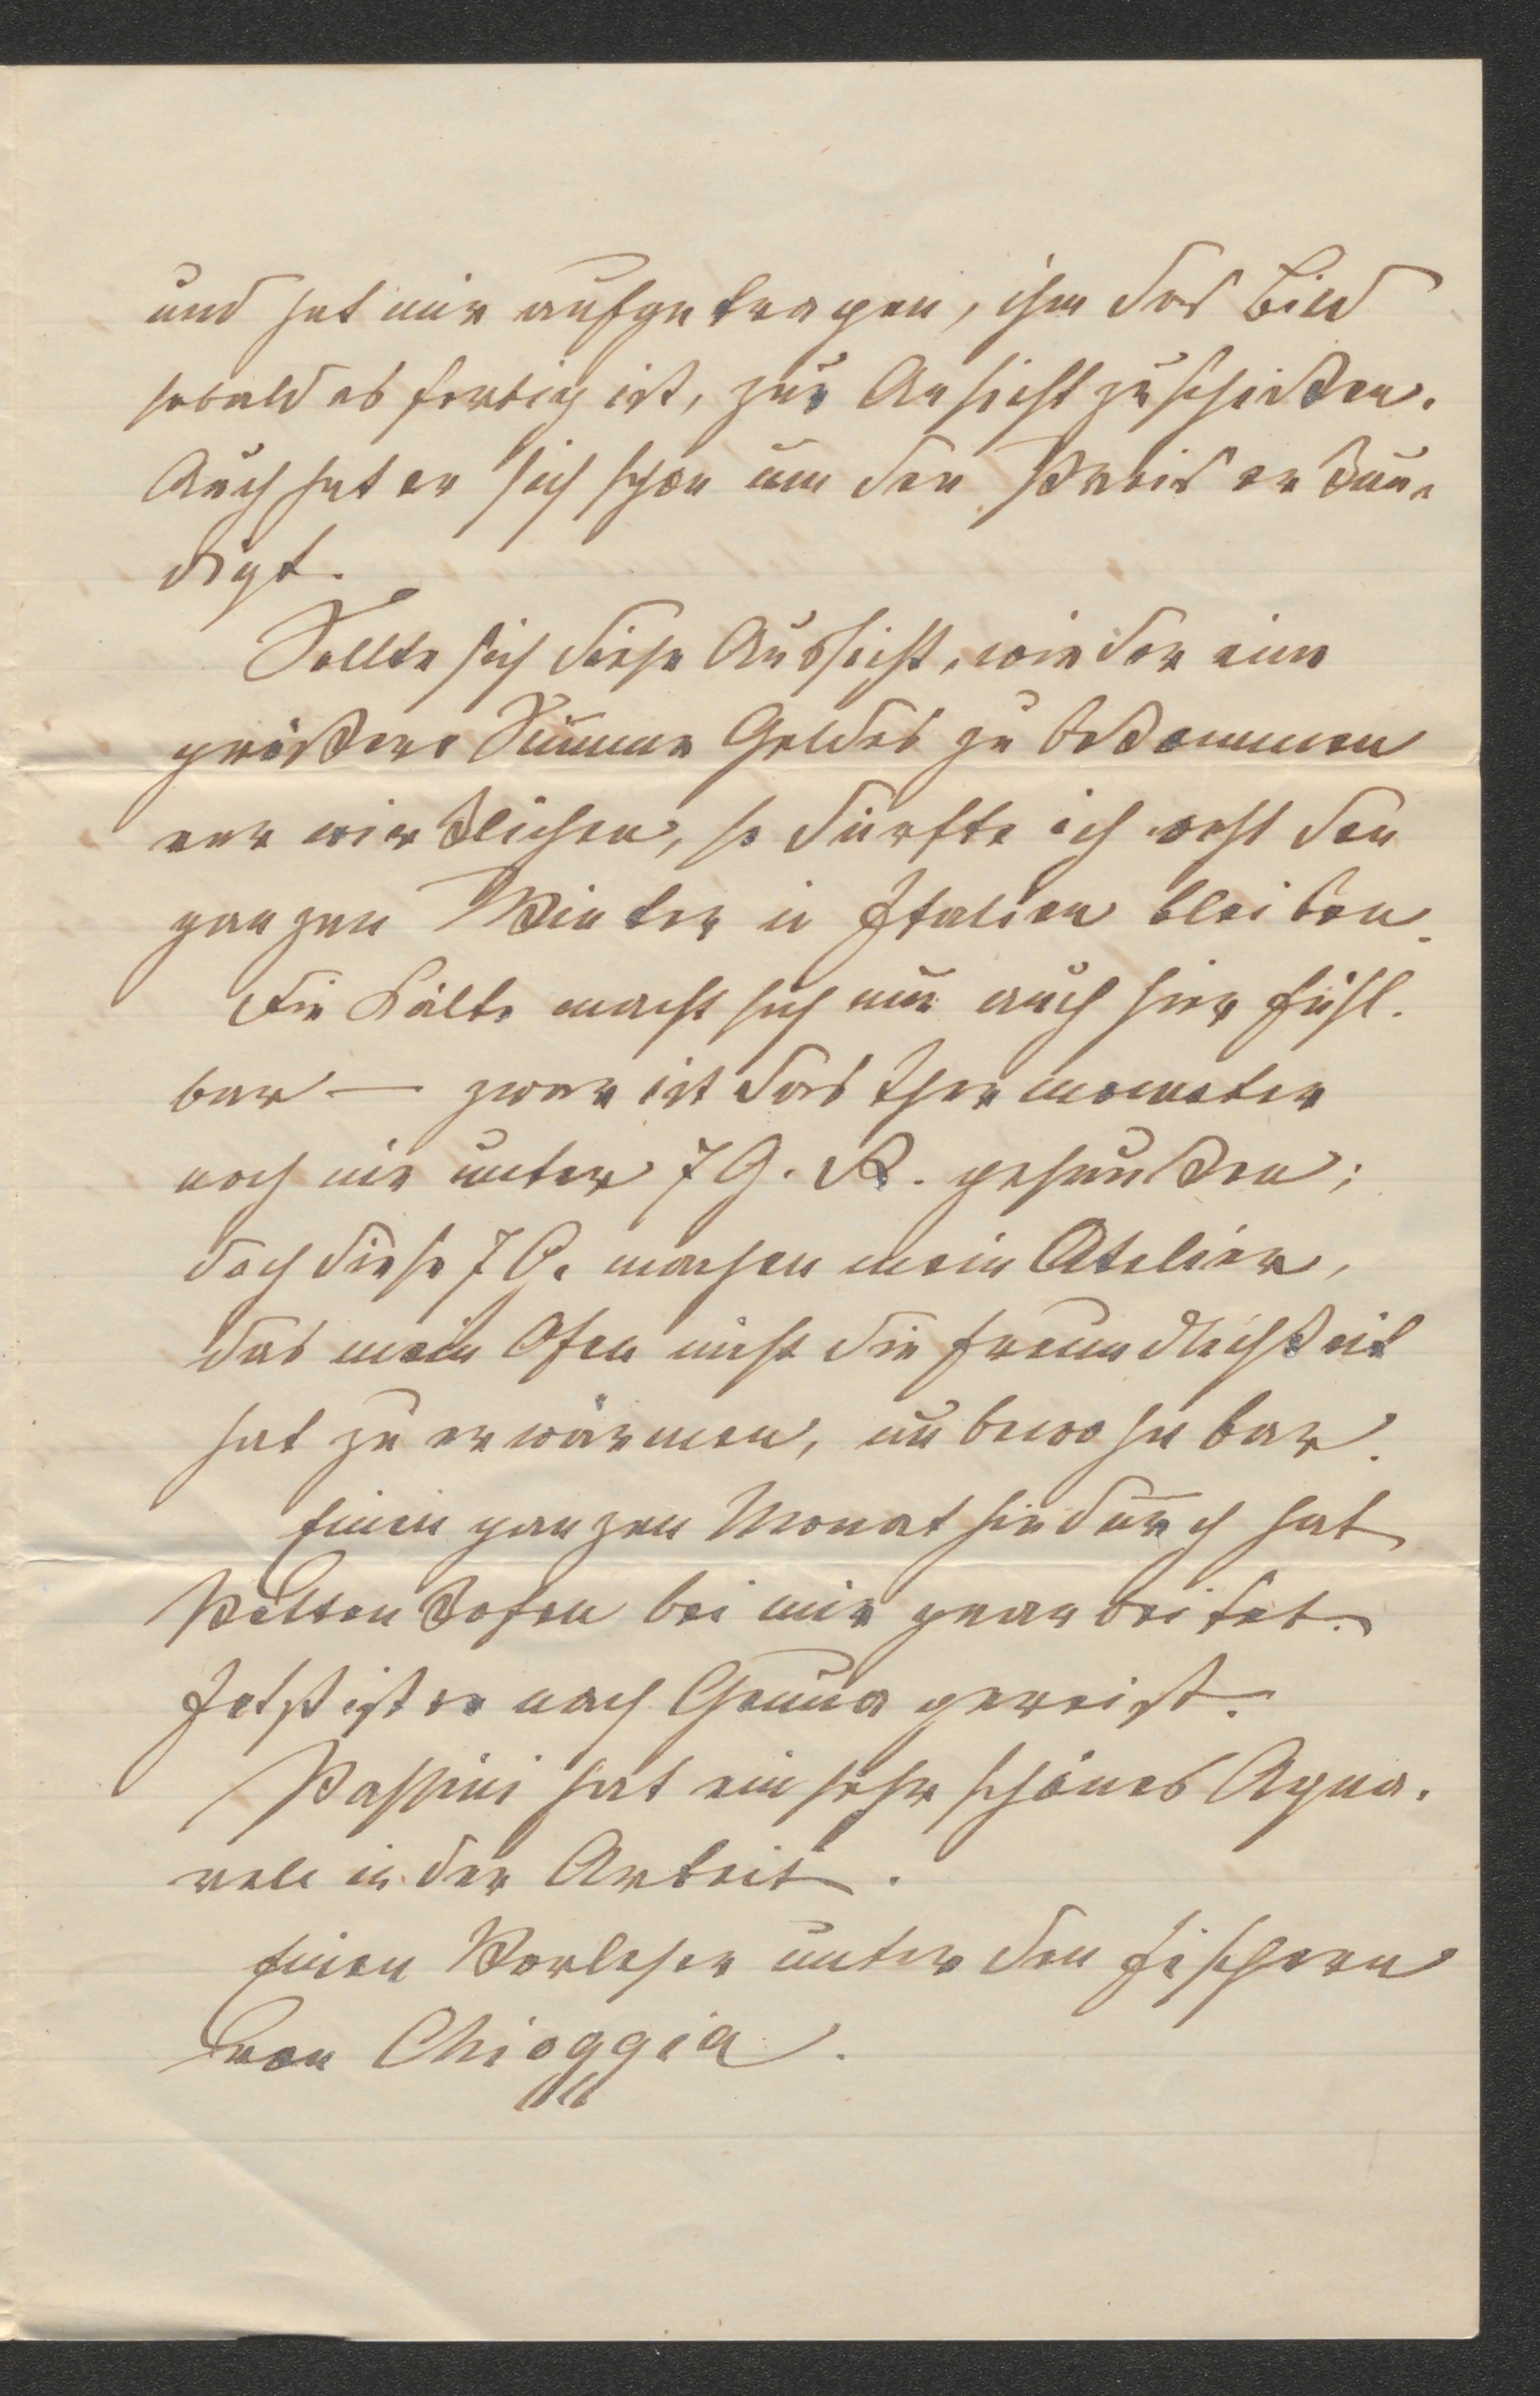 und hat mir aufgetragen, ihm das Bild
sobald es fertig ist, zur Ansicht zu schicken.
Auch hat er sich schon um den Preis erkun-
digt.
Sollte sich diese Aussicht, wieder eine
größere Summe Geldes zu bekommen
verwirklichen, so dürfte ich wohl den
ganzen Winter in Italien bleiben.
Die Kälte macht sich nun auch hier fühl-
bar — zwar ist das Thermometer
noch nie unter 7 G. R. gesunken;
doch diese 7 G. machen mein Atelier,
das mein Ofen nicht die Freundlichkeit
hat zu erwärmen, unbewohnbar.
Einen ganzen Monat hindurch hat
Pettenkofen bei mir gearbeitet.
Jetzt ist er nach Genua gereist.
Passini hat ein sehr schönes Aqua-
rell in der Arbeit.
Einen Vorleser unter den Fischern
von Chioggia.